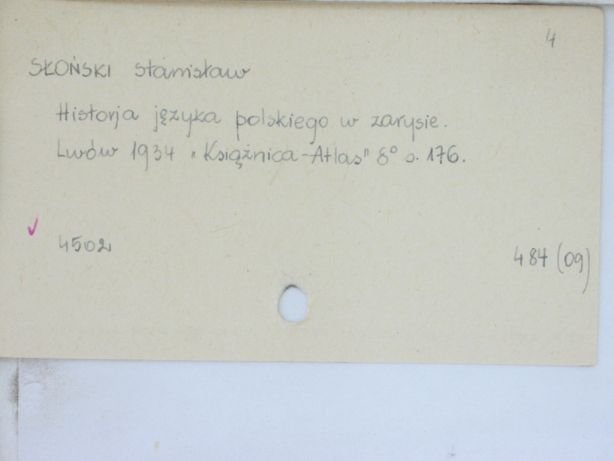 4
SŁOŃSKI Stanisław
Historja języka polskiego w zarysie.
Lwów 1934 "Książnica-Atlas" 8° s. 176.
4502
484 (09)